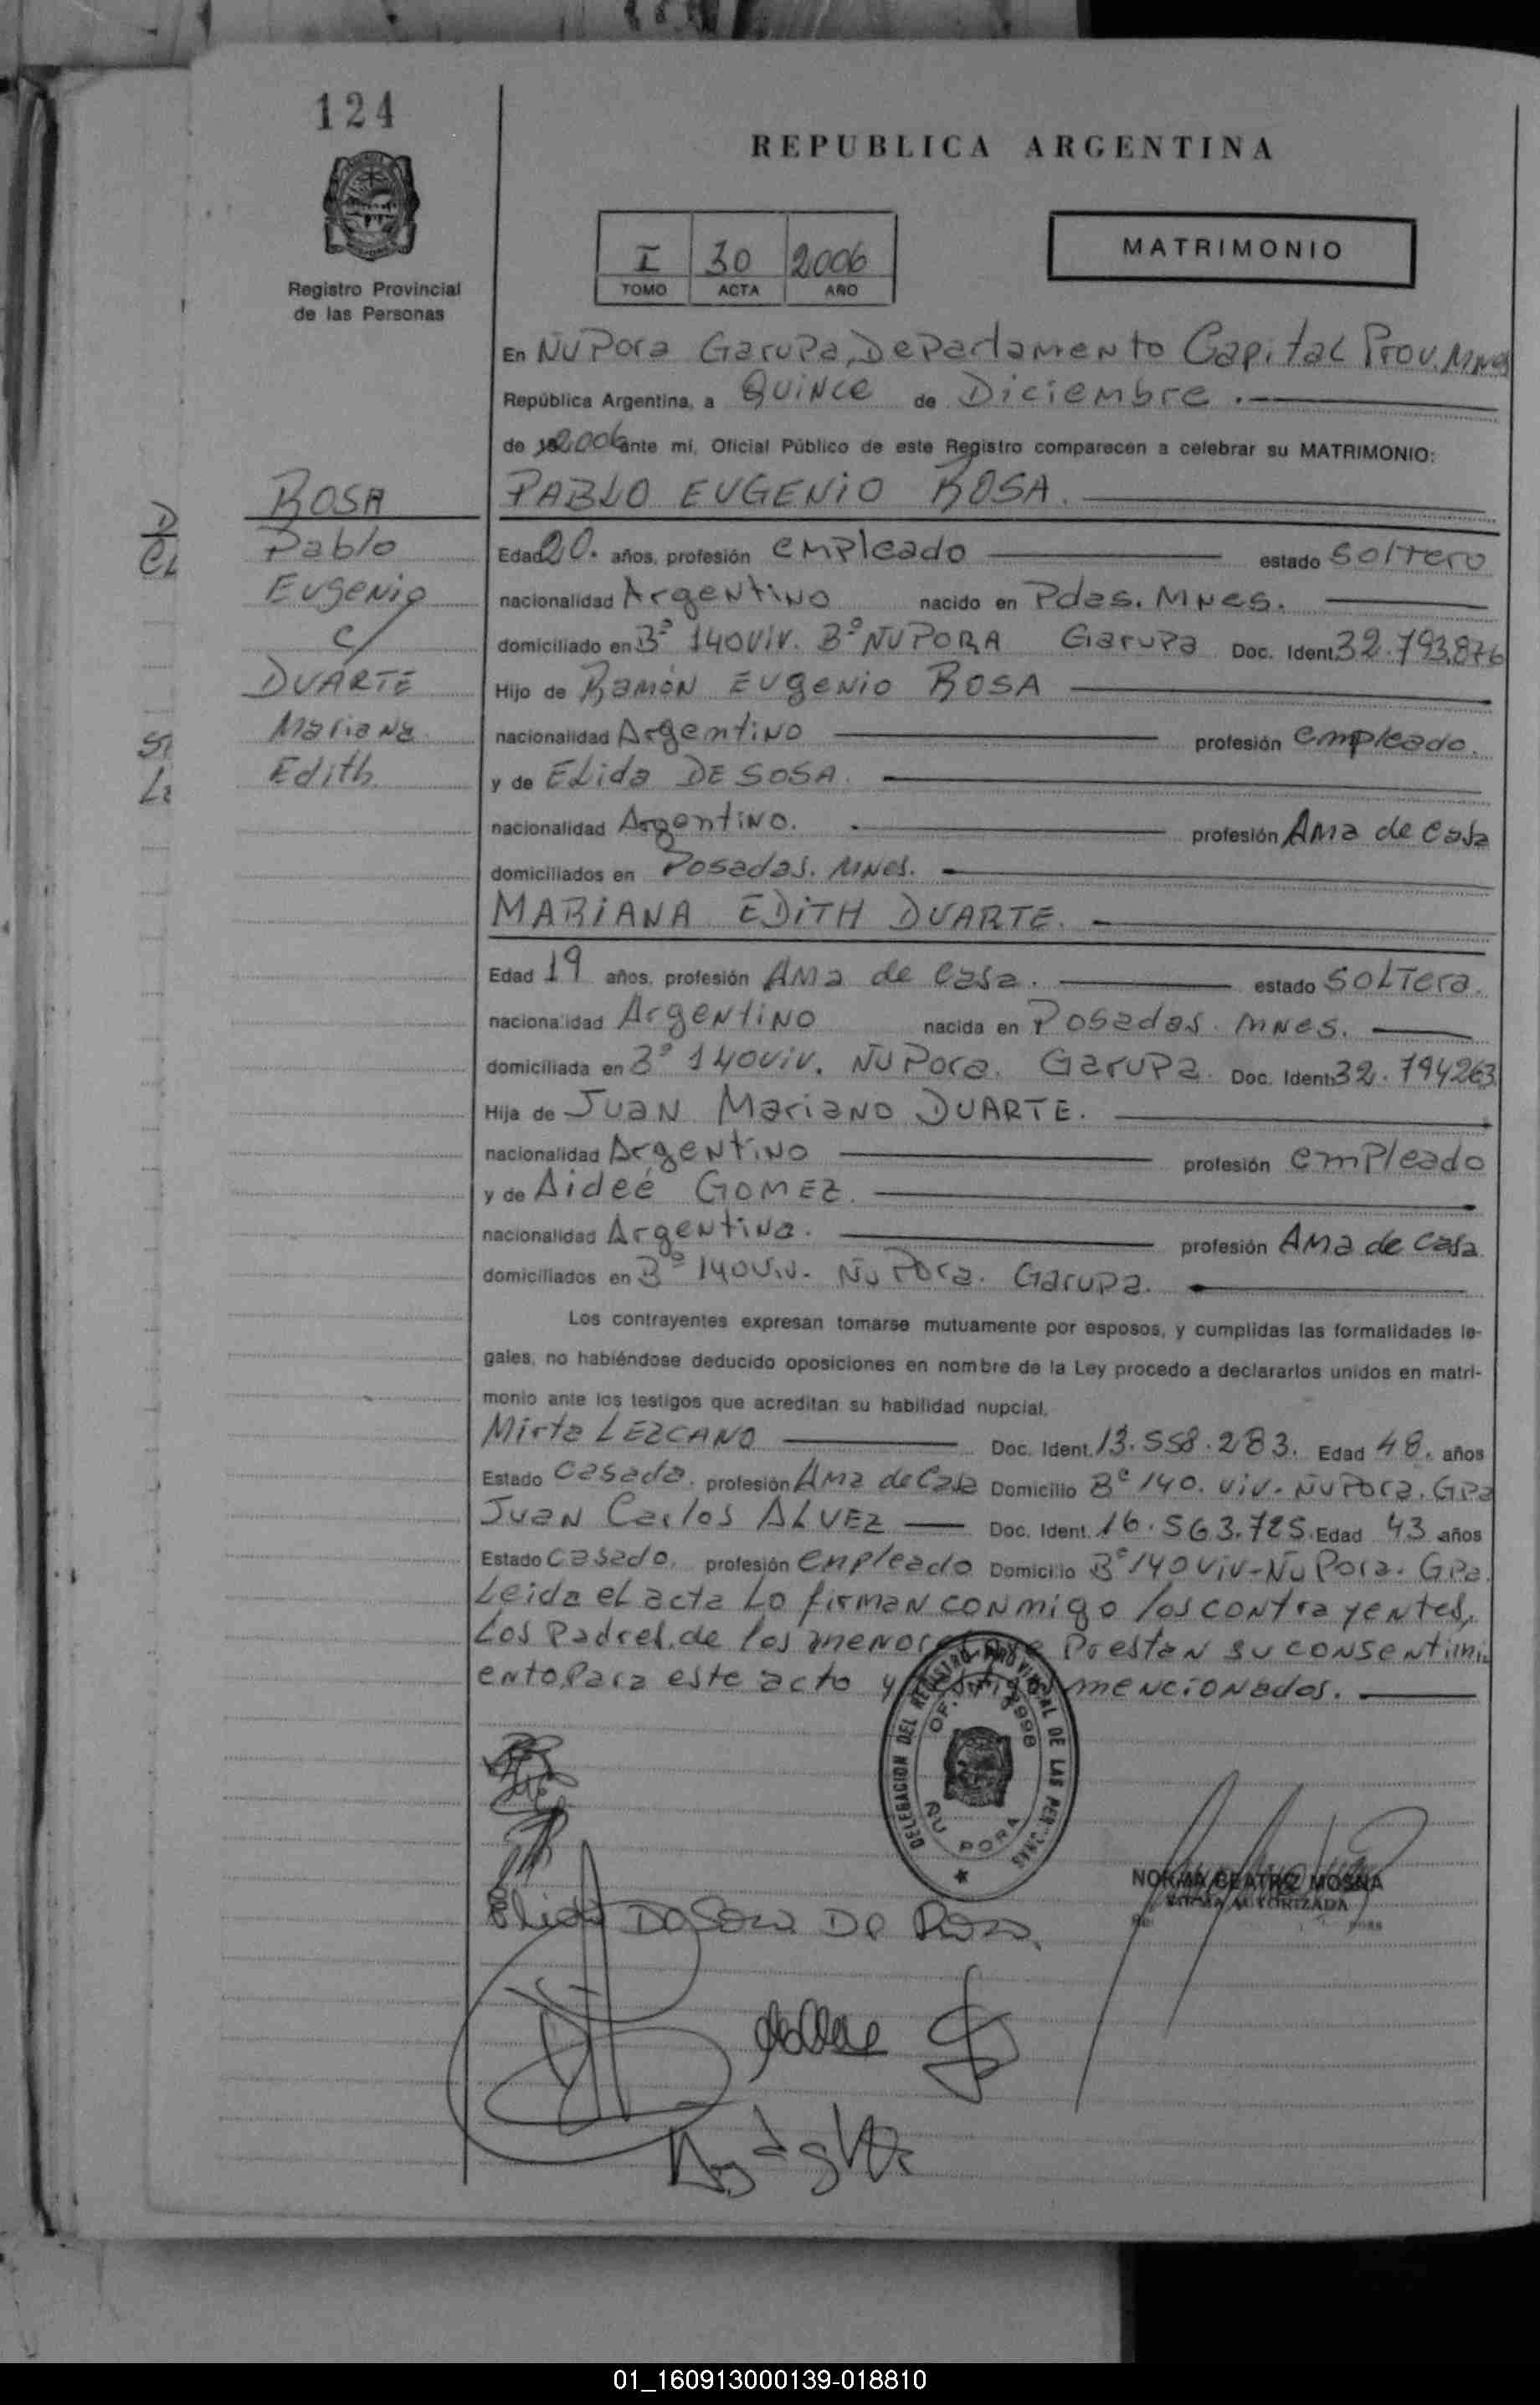 124
REPUBLICA ARGENTINA
Registro Provincial
de las Personas
I 30 2006
TOMO ACTA AÑO
MATRIMONIO
En ÑU Pora Garupa, Departamento Capital Prov. Mnes
República Argentina, a Quince de Diciembre.
de 2006 ante mi, Oficial Público de este Registro comparecen a celebrar su MATRIMONIO:
ROSA
Pablo
Eugenio
c/
DUARTE
Mariana
Edith
PABLO EUGENIO ROSA.
Edad 20. años, profesión empleado estado Soltero
nacionalidad Argentino nacido en Pdas. Mnes.
domiciliado en Bº 140 viv. Bº ÑU PORA Garupa Doc. Ident. 32.793.876
Hijo de Ramón Eugenio ROSA
nacionalidad Argentino profesión empleado.
y de Elida DE SOSA.
nacionalidad Argentino. profesión Ama de casa
domiciliados en Posadas. Mnes.
MARIANA EDITH DUARTE.
Edad 19 años, profesión Ama de casa. estado SOLTera.
nacionalidad Argentino nacida en Posadas. Mnes.
domiciliada en Bº 140 viv. ÑU Pora. Garupa. Doc. Ident. 32.794263
Hija de Juan Mariano DUARTE.
nacionalidad Argentino profesión empleado
y de Aideé GOMEZ.
nacionalidad Argentina. profesión Ama de casa
domiciliados en Bº 140 Viv. Ñu Pora. Garupa.
Los contrayentes expresan tomarse mutuamente por esposos, y cumplidas las formalidades le-
gales, no habiéndose deducido oposiciones en nombre de la Ley procedo a declararlos unidos en matri-
monio ante los testigos que acreditan su habilidad nupcial.
Mirta LEZCANO Doc. Ident. 13.558.283. Edad 48. años
Estado Casada. profesión Ama de Casa Domicilio Bº 140. viv. ÑU Pora. Gpa
Juan Carlos ALVEZ Doc. Ident. 16.563.725. Edad 43 años
Estado Casado. profesión empleado Domicilio Bº 140 viv-Ñu Pora. Gpa.
Leida el acta Lo firman conmigo los contrayentes,
Los Padres de los menores que Prestan su consentimi
ento Para este acto y testigos mencionados.
DELEGACION DEL REGISTRO PROVINCIAL DE LAS PERSONAS
OF. 1998
ÑU PORA
NORMA BEATRIZ MOSNA
FIRMA AUTORIZADA
Elida De Sosa De Rosa
01_160913000139-018810